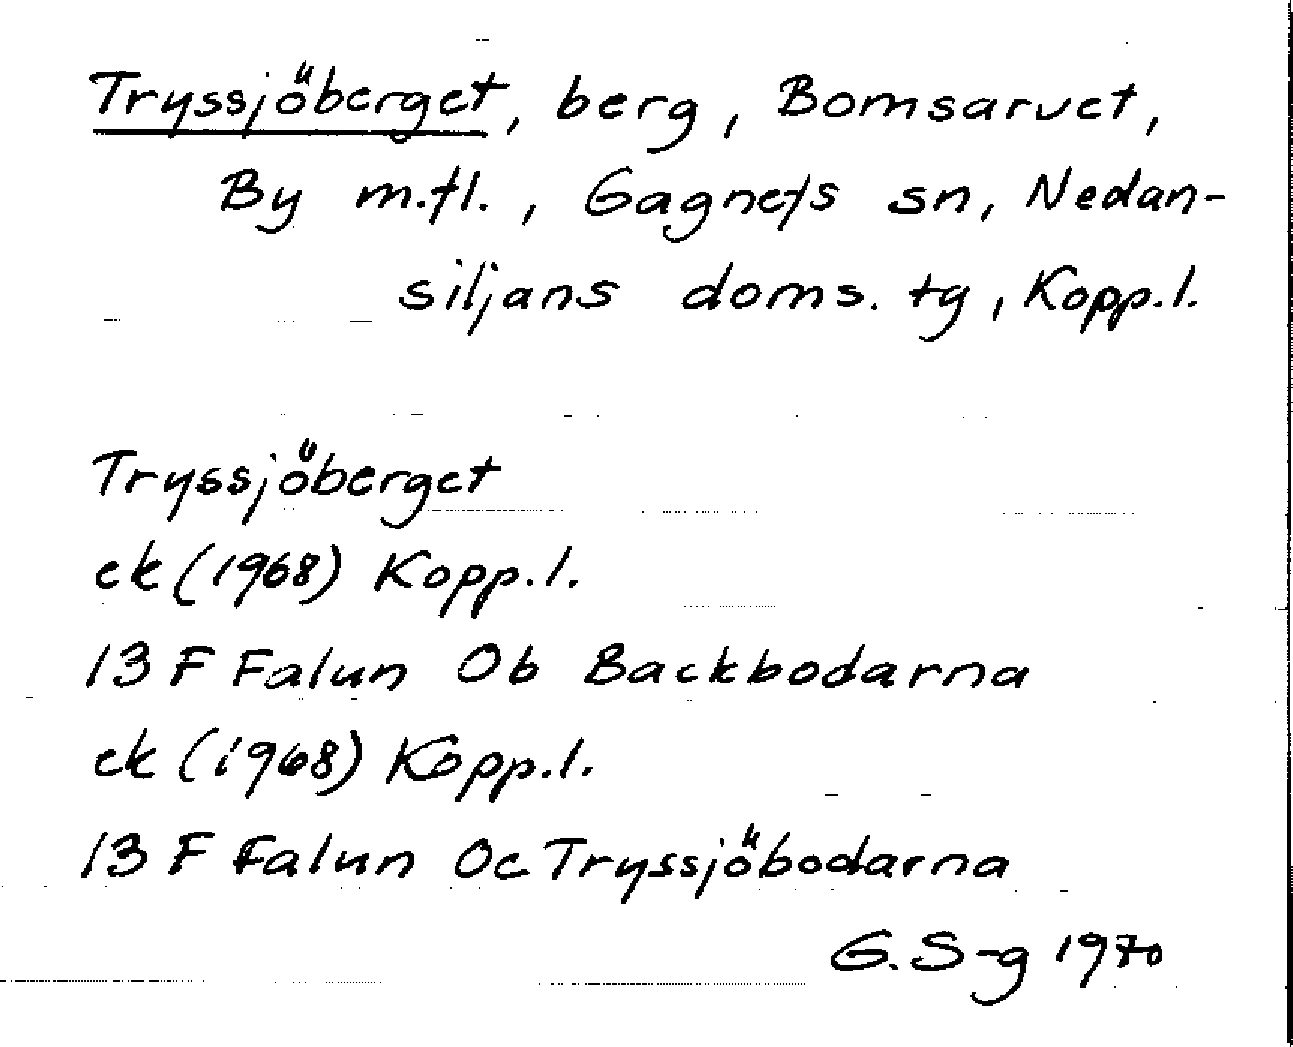 Tryssjöberget, berg, Bomsarvet,
By m.fl., Gagnefs sn, Nedan-
siljans doms. tg, Kopp.l.
Tryssjöberget
ek (1968) Kopp.l.
13 F Falun 0b Backbodarna
ek (1968) Kopp.l.
13 F Falun 0c Tryssjöbodarna
G. S-g 1970